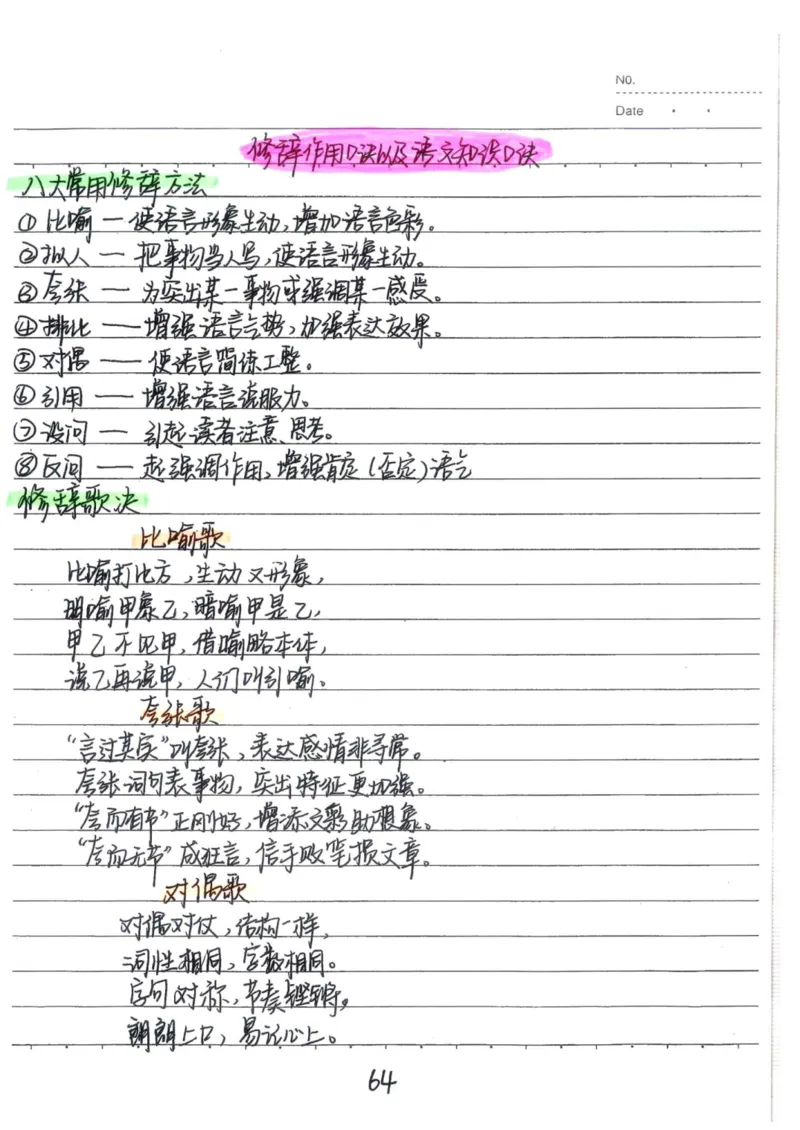 No.
Date
修辞作用口诀以及语文知识口诀
八大常用修辞方法
① 比喻 — 使语言形象生动,增加语言色彩。
②拟人 — 把事物当人写,使语言形象生动。
③夸张 — 为突出某一事物或强调某一感受。
④排比 — 增强语言气势,加强表达效果。
⑤对偶 — 使语言简练工整。
⑥引用 — 增强语言说服力。
⑦设问 — 引起读者注意、思考。
⑧反问 — 起强调作用,增强肯定(否定)语气
修辞歌决
比喻歌
比喻打比方,生动又形象,
明喻甲象乙,暗喻甲是乙,
甲乙不见甲,借喻略本体,
说乙再说甲,人们叫引喻。
夸张歌
“言过其实”叫夸张,表达感情非寻常。
夸张词句表事物,突出特征更加强。
“夸而有节”正刚好,增添文彩助想象。
“夸而无节”成狂言,信手败笔损文章。
对偶歌
对偶对仗,结构一样,
词性相同,字数相同。
字句对称,节奏铿锵,
朗朗上口,易记心上。
64